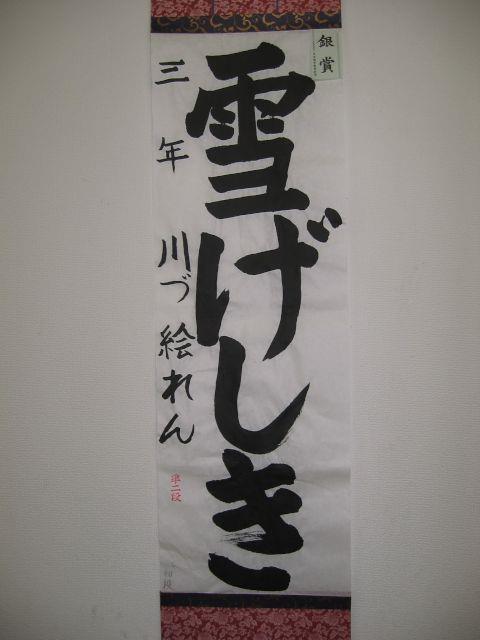 銀賞
雪げしき
三年 川づ絵れん
準二段